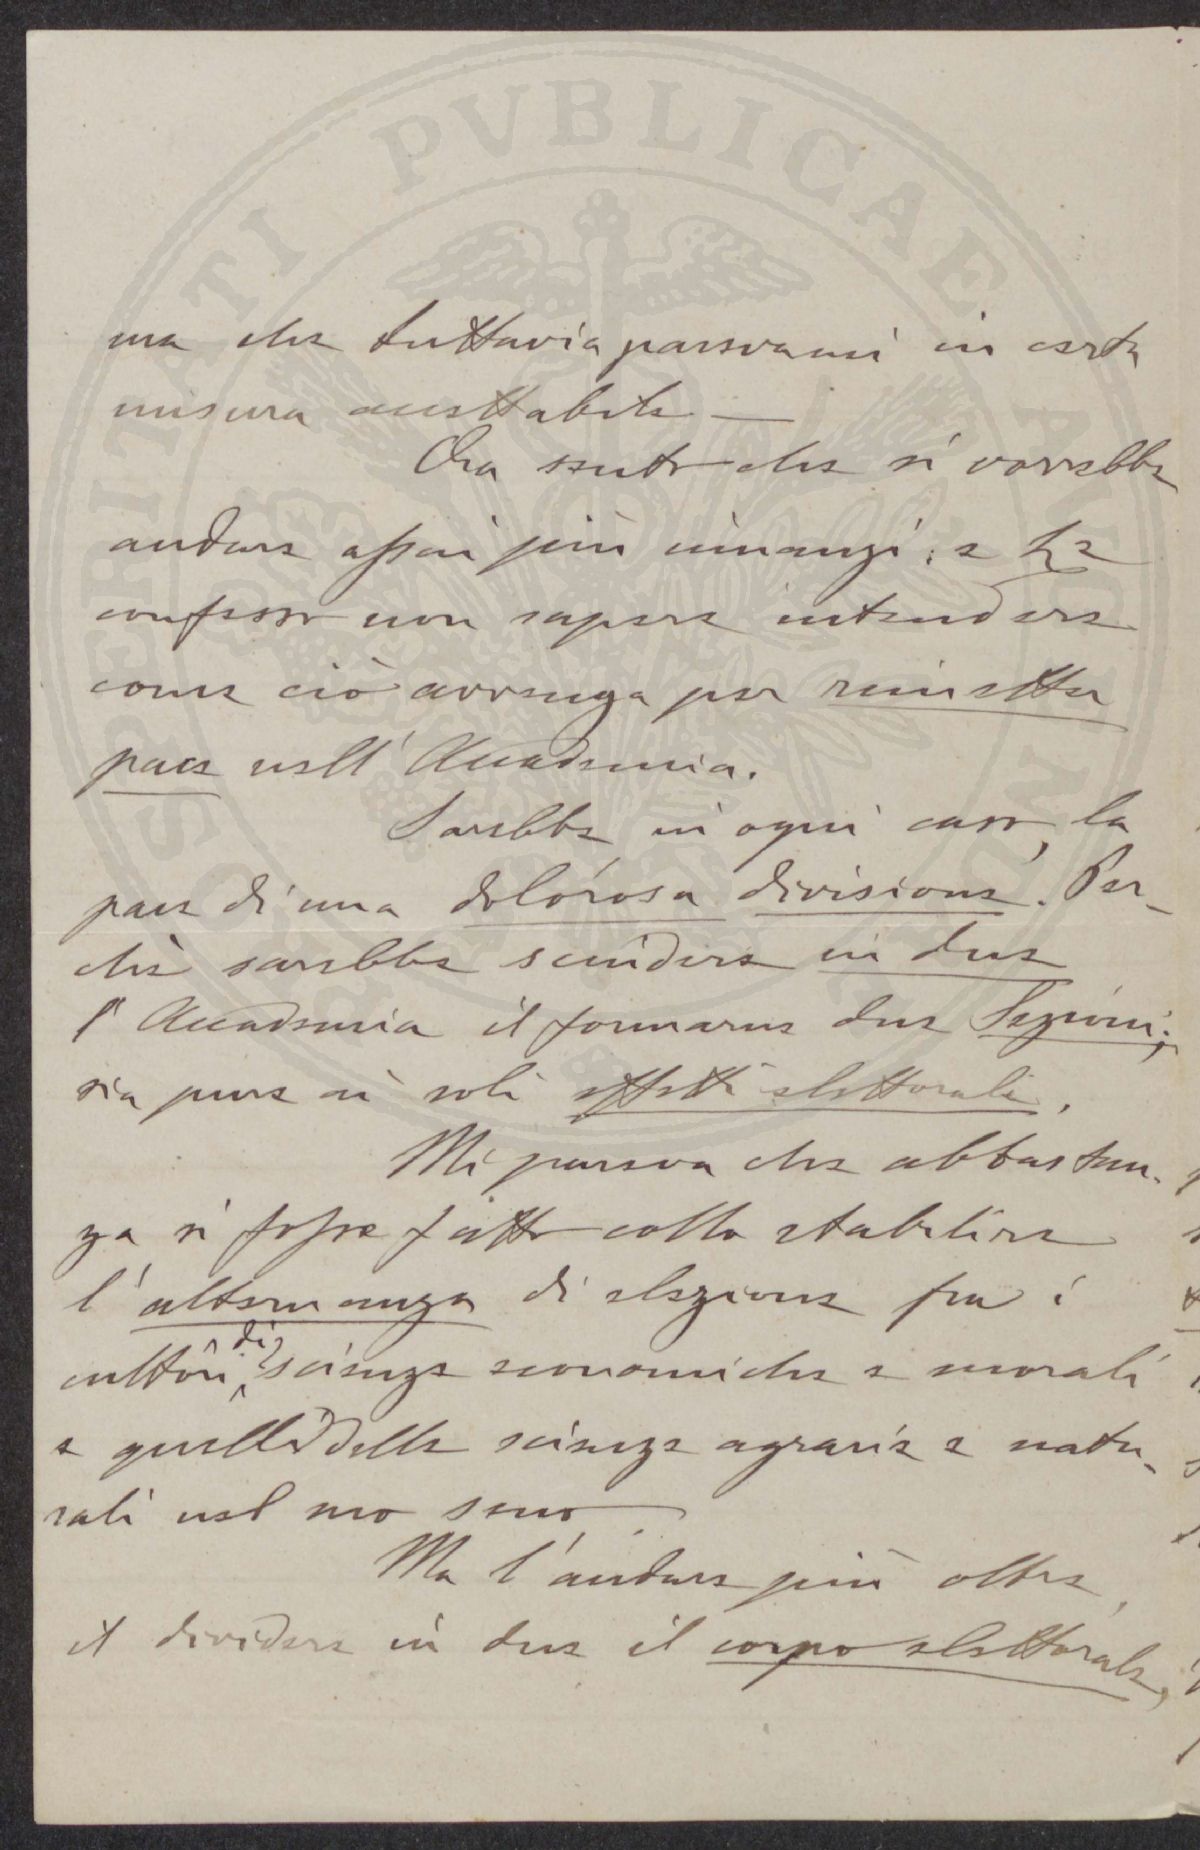 PROSPERITATI PVBLICAE AVGENDAE
ma che tuttavia parevami in certa
misura accettabile —
Ora sento che si vorrebbe
andare assai più innanzi; e Le
confesso non sapere intendere
come ciò avvenga per rimetter
pace nell'Accademia.
Sarebbe in ogni caso, la
pace di una dolorosa divisione. Per-
chè sarebbe scindere in due
l'Accademia il formarne due Sezioni;
sia pure ai soli effetti elettorali.
Mi pareva che abbastan-
za si fosse fatto collo stabilire
l'alternanza di elezione fra i
cultori di scienze economiche e morali
e quelli delle scienze agrarie e natu-
rali nel suo seno.
Ma l'andare più oltre,
il dividere in due il corpo elettorale,